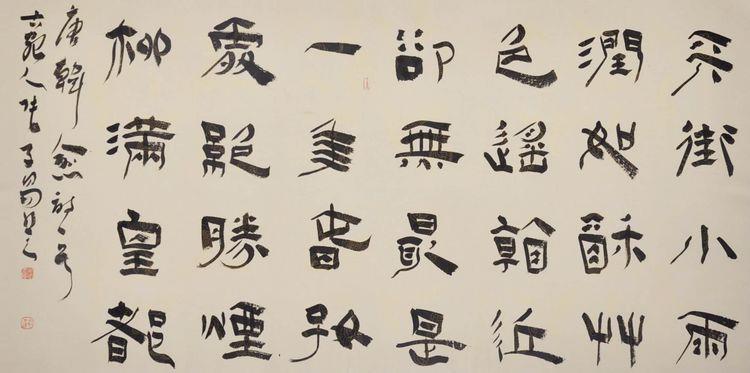 天街小雨
潤如酥艸
色遙看近
卻無最是
一年春好
處絕勝煙
柳滿皇都
唐韓愈詩一首
人